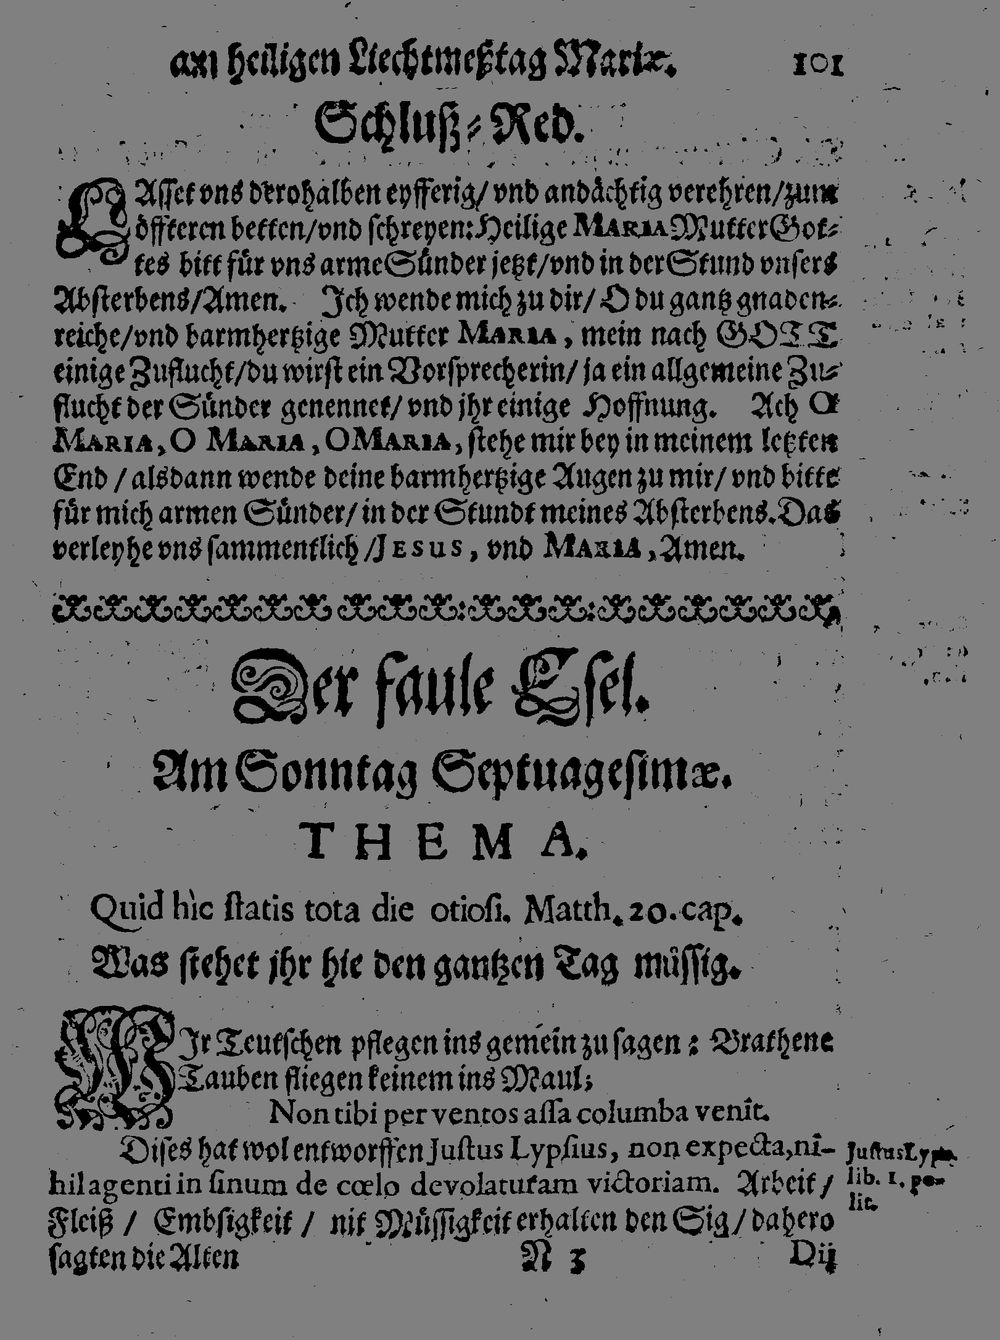 am heiligen Liechtmeßtag Mariæ. 101
Schluß-Red.
LAsset vns derohalben eyfferig/ vnd andächtig verehren/zum
öffteren betten/vnd schreyen: Heilige MARIA Mutter Got-
tes bitt für vns arme Sünder jetzt/vnd in der Stund vnsers
Absterbens/Amen. Ich wende mich zu dir/ O du gantz gnaden-
reiche/vnd barmhertzige Mutter MARIA, mein nach GOTT
einige Zuflucht/du wirst ein Vorsprecherin/ ja ein allgemeine Zu-
flucht der Sünder genennet/ vnd jhr einige Hoffnung. Ach O
MARIA, O MARIA, O MARIA, stehe mir bey in meinem letzten
End / alsdann wende deine barmhertzige Augen zu mir/ vnd bitte
für mich armen Sünder/ in der Stundt meines Absterbens. Das
verleyhe vns sammentlich /JESUS, vnd MARIA, Amen.
Der faule Esel.
Am Sonntag Septuagesimæ.
THEMA.
Quid hìc statis tota die otiosi. Matth. 20. cap.
Was stehet jhr hie den gantzen Tag müssig.
WIr Teutschen pflegen ins gemein zu sagen: Brathene
Tauben fliegen keinem ins Maul;
Non tibi per ventos assa columba venit.
Dises hat wol entworffen Justus Lypsius, non expecta, ni-
hil agenti in sinum de cœlo devolaturam victoriam. Arbeit /
Fleiß / Embsigkeit / nit Müssigkeit erhalten den Sig / dahero
sagten die Alten
Justus Lyps.
lib. 1. po-
lit.
N 3 Dij